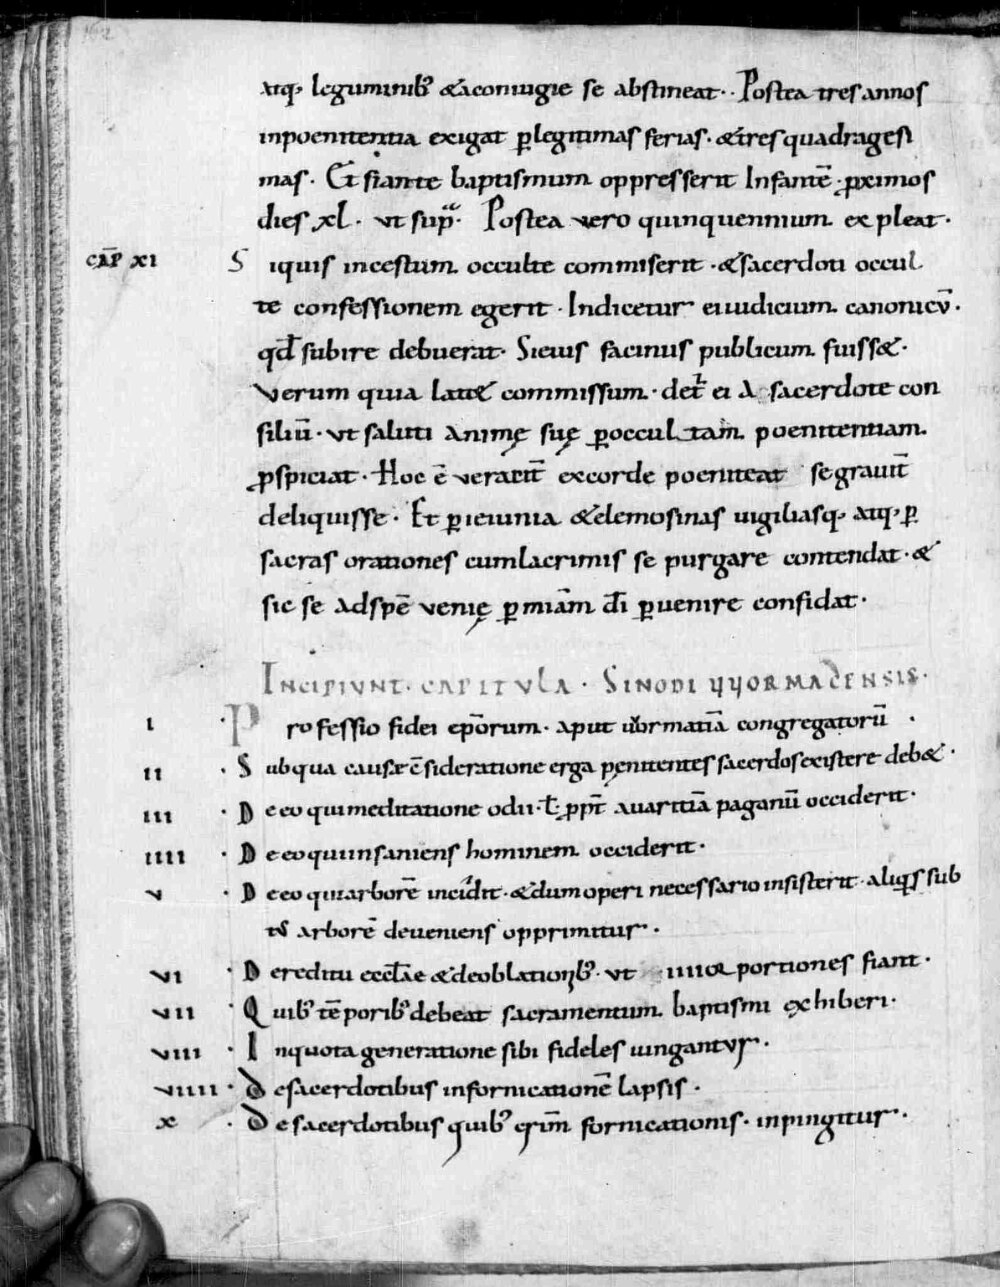 atq; leguminib; & a coniugie se abstineat. Postea tres annos
in poenitentia exigat p̱ legitimas ferias. & tres quadragesi
mas. Et si ante baptismum oppresserit Infantē. ꝓximos
dies xl. ut sup̄ᵃ. Postea vero quinquennium expleat.
CAP̄ XI S iquis incestum occulte commiserit. & sacerdoti occul
te confessionem egerit. Indicetur ei iudicium canonicū.
qđ subire debuerat. Si eius facinus publicum fuiss&.
Verum quia lat& commissum. det̄ ei a sacerdote con
siliū. ut saluti animę suę ꝑ occultam poenitentiam
ꝓspiciat. Hoc ē veracit̄ ex corde poeniteat se grauit̄
deliquisse. Et ꝑ ieiunia & elemosinas uigiliasq; atq; ꝑ
sacras orationes cum lacrimis se purgare contendat. &
sic se ad spē venię ꝑ miām d̄i ꝑuenire confidat.
INCIPIUNT. CAPITULA. SINODI UUORMACENSIS.
I . P rofessio fidei ep̄orum. aput uuormatiā congregatorū.
II . S ub qua causa c̄sideratione erga penitentes sacerdos existere deb&.
III . D e eo qui meditatione odii. ł ꝓpt̄ auaritiā paganū occiderit.
IIII . D e eo qui insaniens hominem occiderit.
V . D e eo qui arborē inciderit. & dum operi necessario insisterit. aliq̄s sub
t̄ arborē deueniens opprimitur.
VI . D e reditu eccl̄ae & de oblationib;. ut IIIIor portiones fiant.
VII . Q uib; tēporib; debeat sacramentum baptismi exhiberi.
VIII . I n quota generatione sibi fideles iungantur.
VIIII . D e sacerdotibus in fornicationē lapsis.
X . D e sacerdotibus quib; crim̄ fornicationis. inpingitur.